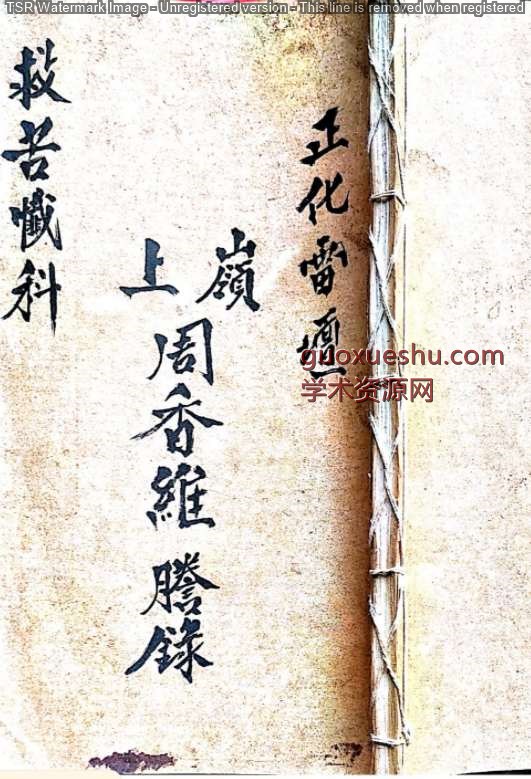 TSR Watermark Image - Unregistered version - This line is removed when registered
正化雷壇
嶺上
周香維謄錄
救苦懺科
guoxueshu.com
学术资源网